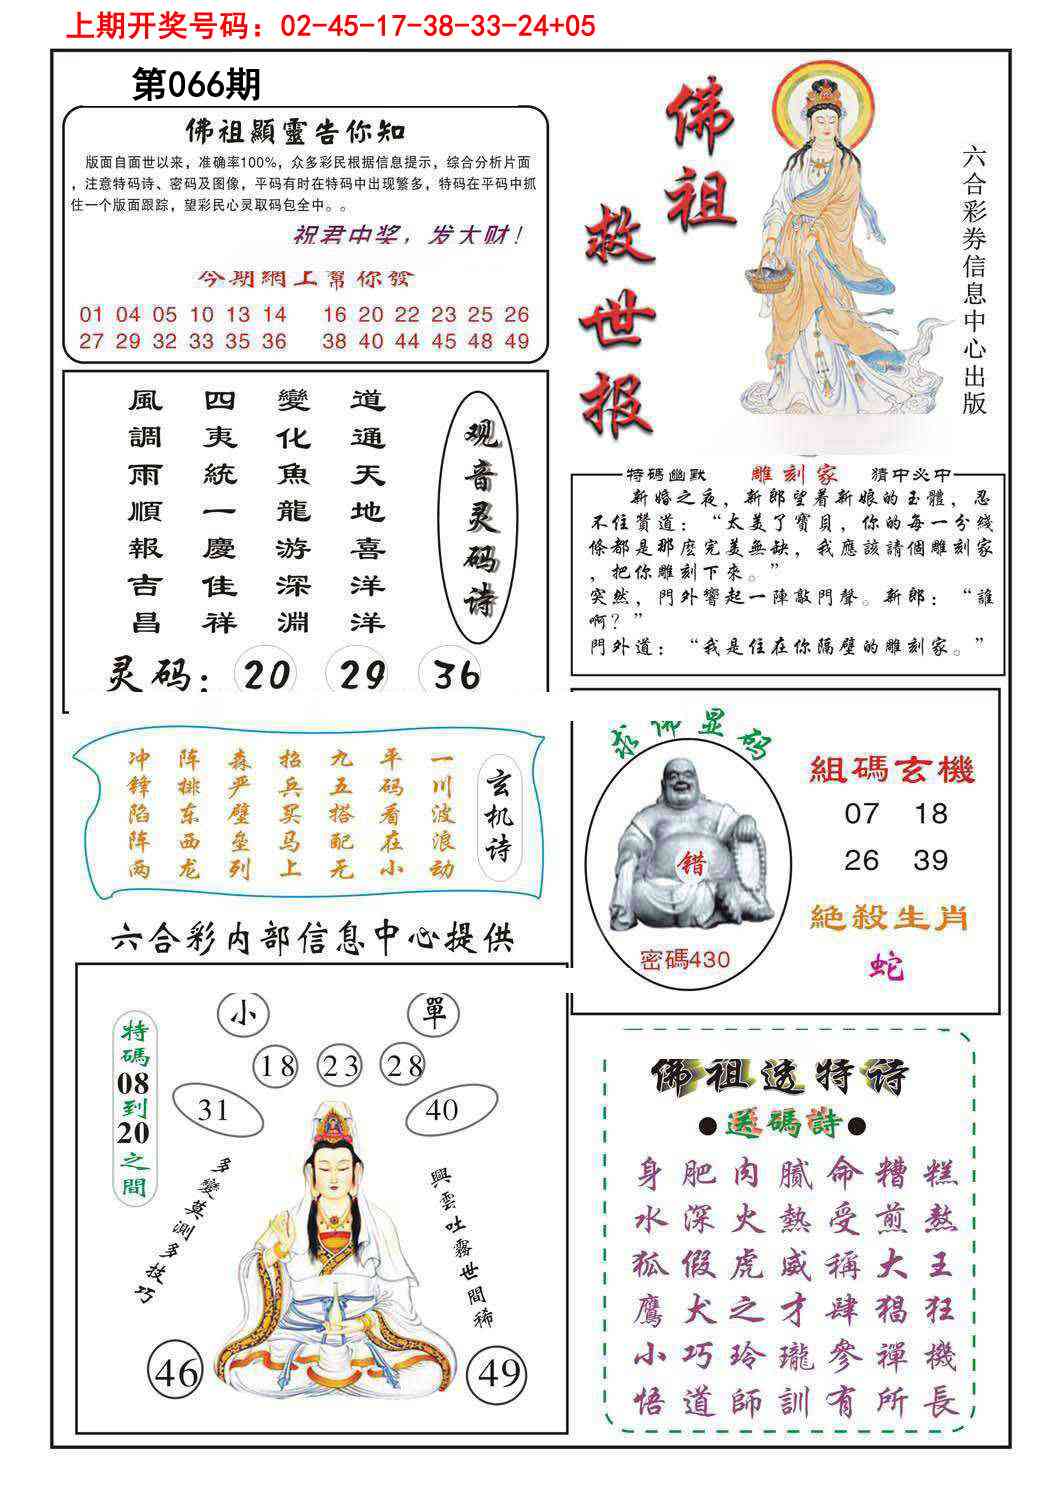 上期开奖号码：02-45-17-38-33-24+05
第066期
佛祖顯靈告你知
版面自面世以来，准确率100%，众多彩民根据信息提示，综合分析片面
，注意特码诗、密码及图像，平码有时在特码中出现繁多，特码在平码中抓
住一个版面跟踪，望彩民心灵取码包全中。。
祝君中奖，发大财！
今期網上幫你發
01 04 05 10 13 14 16 20 22 23 25 26
27 29 32 33 35 36 38 40 44 45 48 49
佛祖
救世报
六合彩券信息中心出版
風調雨順報吉昌
四夷統一慶佳祥
變化魚龍游深淵
道通天地喜洋洋
观音灵码诗
灵码：20 29 36
特碼幽默 雕刻家 猜中必中
新婚之夜，新郎望着新娘的玉體，忍
不住贊道：“太美了寶貝，你的每一分綫
條都是那麽完美無缺，我應該請個雕刻家
，把你雕刻下來。”
突然，門外響起一陣敲門聲。新郎：“誰
啊？”
門外道：“我是住在你隔壁的雕刻家。”
冲锋陷阵两
阵排东西龙
森严壁垒列
招兵买马上
九五搭配无
平码看在小
一川波浪动
玄机诗
求佛显码
错
密碼430
組碼玄機
07 18
26 39
絶殺生肖
蛇
六合彩内部信息中心提供
特碼08到20之間
小 單
18 23 28
31 40
多變莫測多技巧
興雲吐霧世間稀
46 49
佛祖透特诗
●送碼詩●
身肥肉膩命糟糕
水深火熱受煎熬
狐假虎威稱大王
鷹犬之才肆猖狂
小巧玲瓏參禪機
悟道師訓有所長